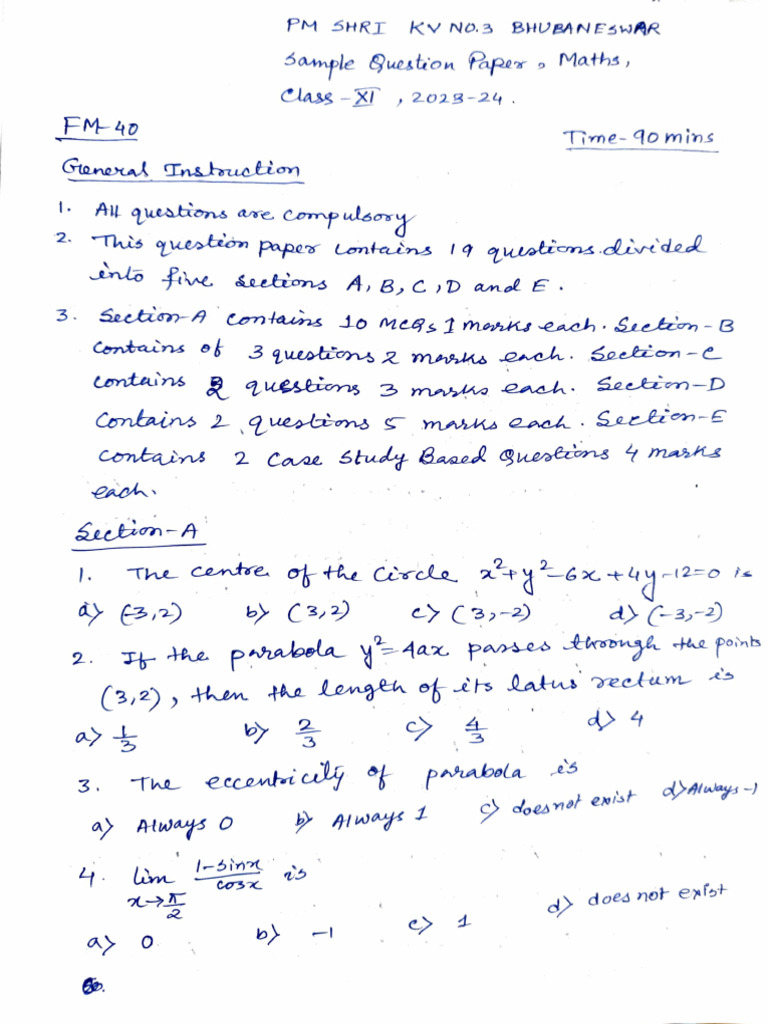 PM SHRI KV NO.3 BHUBANESWAR
Sample Question Paper, Maths,
Class-XI, 2023-24.
FM-40
Time-90 mins
General Instruction
1. All questions are compulsory
2. This question paper contains 19 questions divided
into five sections A, B, C, D and E.
3. Section-A contains 10 MCQs 1 marks each. Section-B
contains of 3 questions 2 marks each. Section-C
contains 2 questions 3 marks each. Section-D
contains 2 questions 5 marks each. Section-E
contains 2 Case Study Based Questions 4 marks
each.
Section-A
1. The centre of the circle x²+y²-6x+4y-12=0 is
a) (-3,2) b) (3,2) c) (3,-2) d) (-3,-2)
2. If the parabola y²=4ax passes through the points
(3,2), then the length of its latus rectum is
a) 1/3 b) 2/3 c) 4/3 d) 4
3. The eccentricity of parabola is
a) Always 0 b) Always 1 c) does not exist d) Always -1
4. lim x→π/2 (1-sinx)/cosx is
a) 0 b) -1 c) 1 d) does not exist